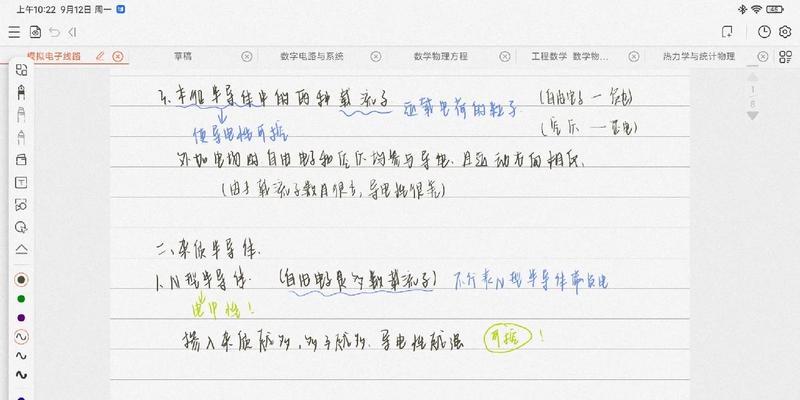 上午10:22 9月12日 周一
模拟电子线路 草稿 数字电路与系统 数学物理方程 工程数学 数学物... 热力学与统计物理
3.本征半导体中的两种载流子 运载电荷的粒子 (自由电子—负电)
使导电性可控 (空穴—正电)
外加电场时自由电子和空穴均参与导电,且运动方向相反.
(由于载流子数目很少,导电性很差)
二、杂质半导体.
1、N型半导体. (自由电子是多数载流子) 不代表N型半导体带负电
电中性!
掺入杂质越多,多子越多,导电性越强 可控!
1
8